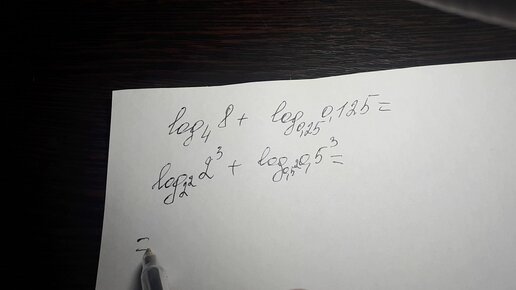 log₄ 8 + log₀,₂₅ 0,125 =
log₂² 2³ + log₀,₅² 0,5³ =
=